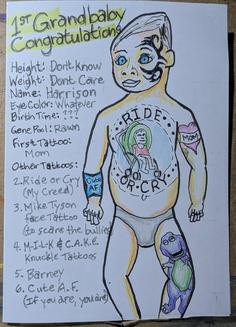 1st Grandbaby
Congratulations
Height: Don't Know
Weight: Don't Care
Name: Harrison
Eye Color: Whatever
Birth Time: ???
Gene Pool: Rawn
First Tattoo:
Mom
Other Tattoos:
2. Ride or Cry
(My Creed)
3. Mike Tyson
face Tattoo
(to scare the bullies)
4. M-I-L-K & C.A.K.E.
Knuckle Tattoos
5. Barney
6. Cute A.F.
(If you are, you are)
RIDE
OR CRY
MOM
Cute
AF